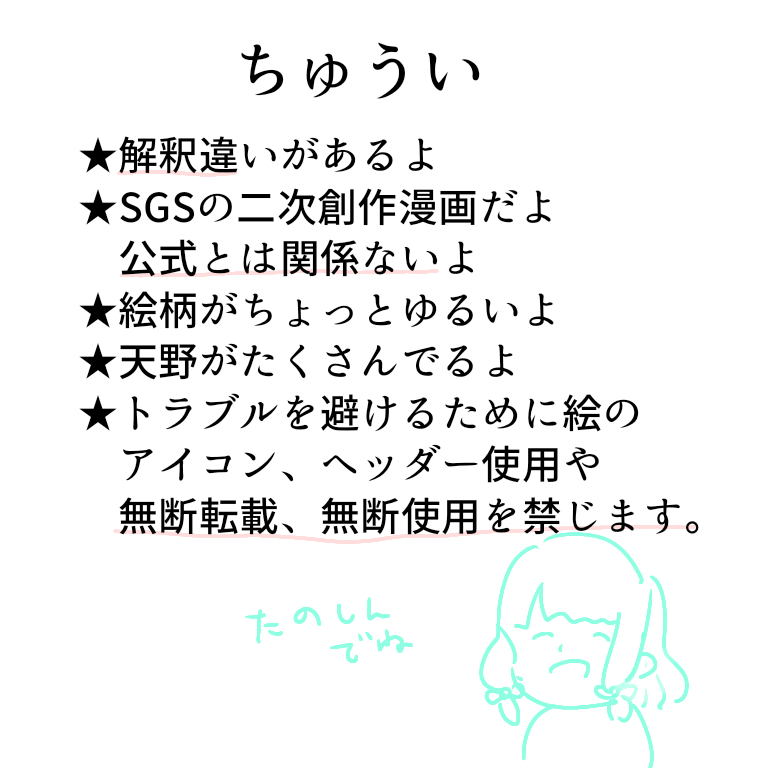 ちゅうい
★解釈違いがあるよ
★SGSの二次創作漫画だよ
公式とは関係ないよ
★絵柄がちょっとゆるいよ
★天野がたくさんでるよ
★トラブルを避けるために絵の
アイコン、ヘッダー使用や
無断転載、無断使用を禁じます。
たのしん
でね